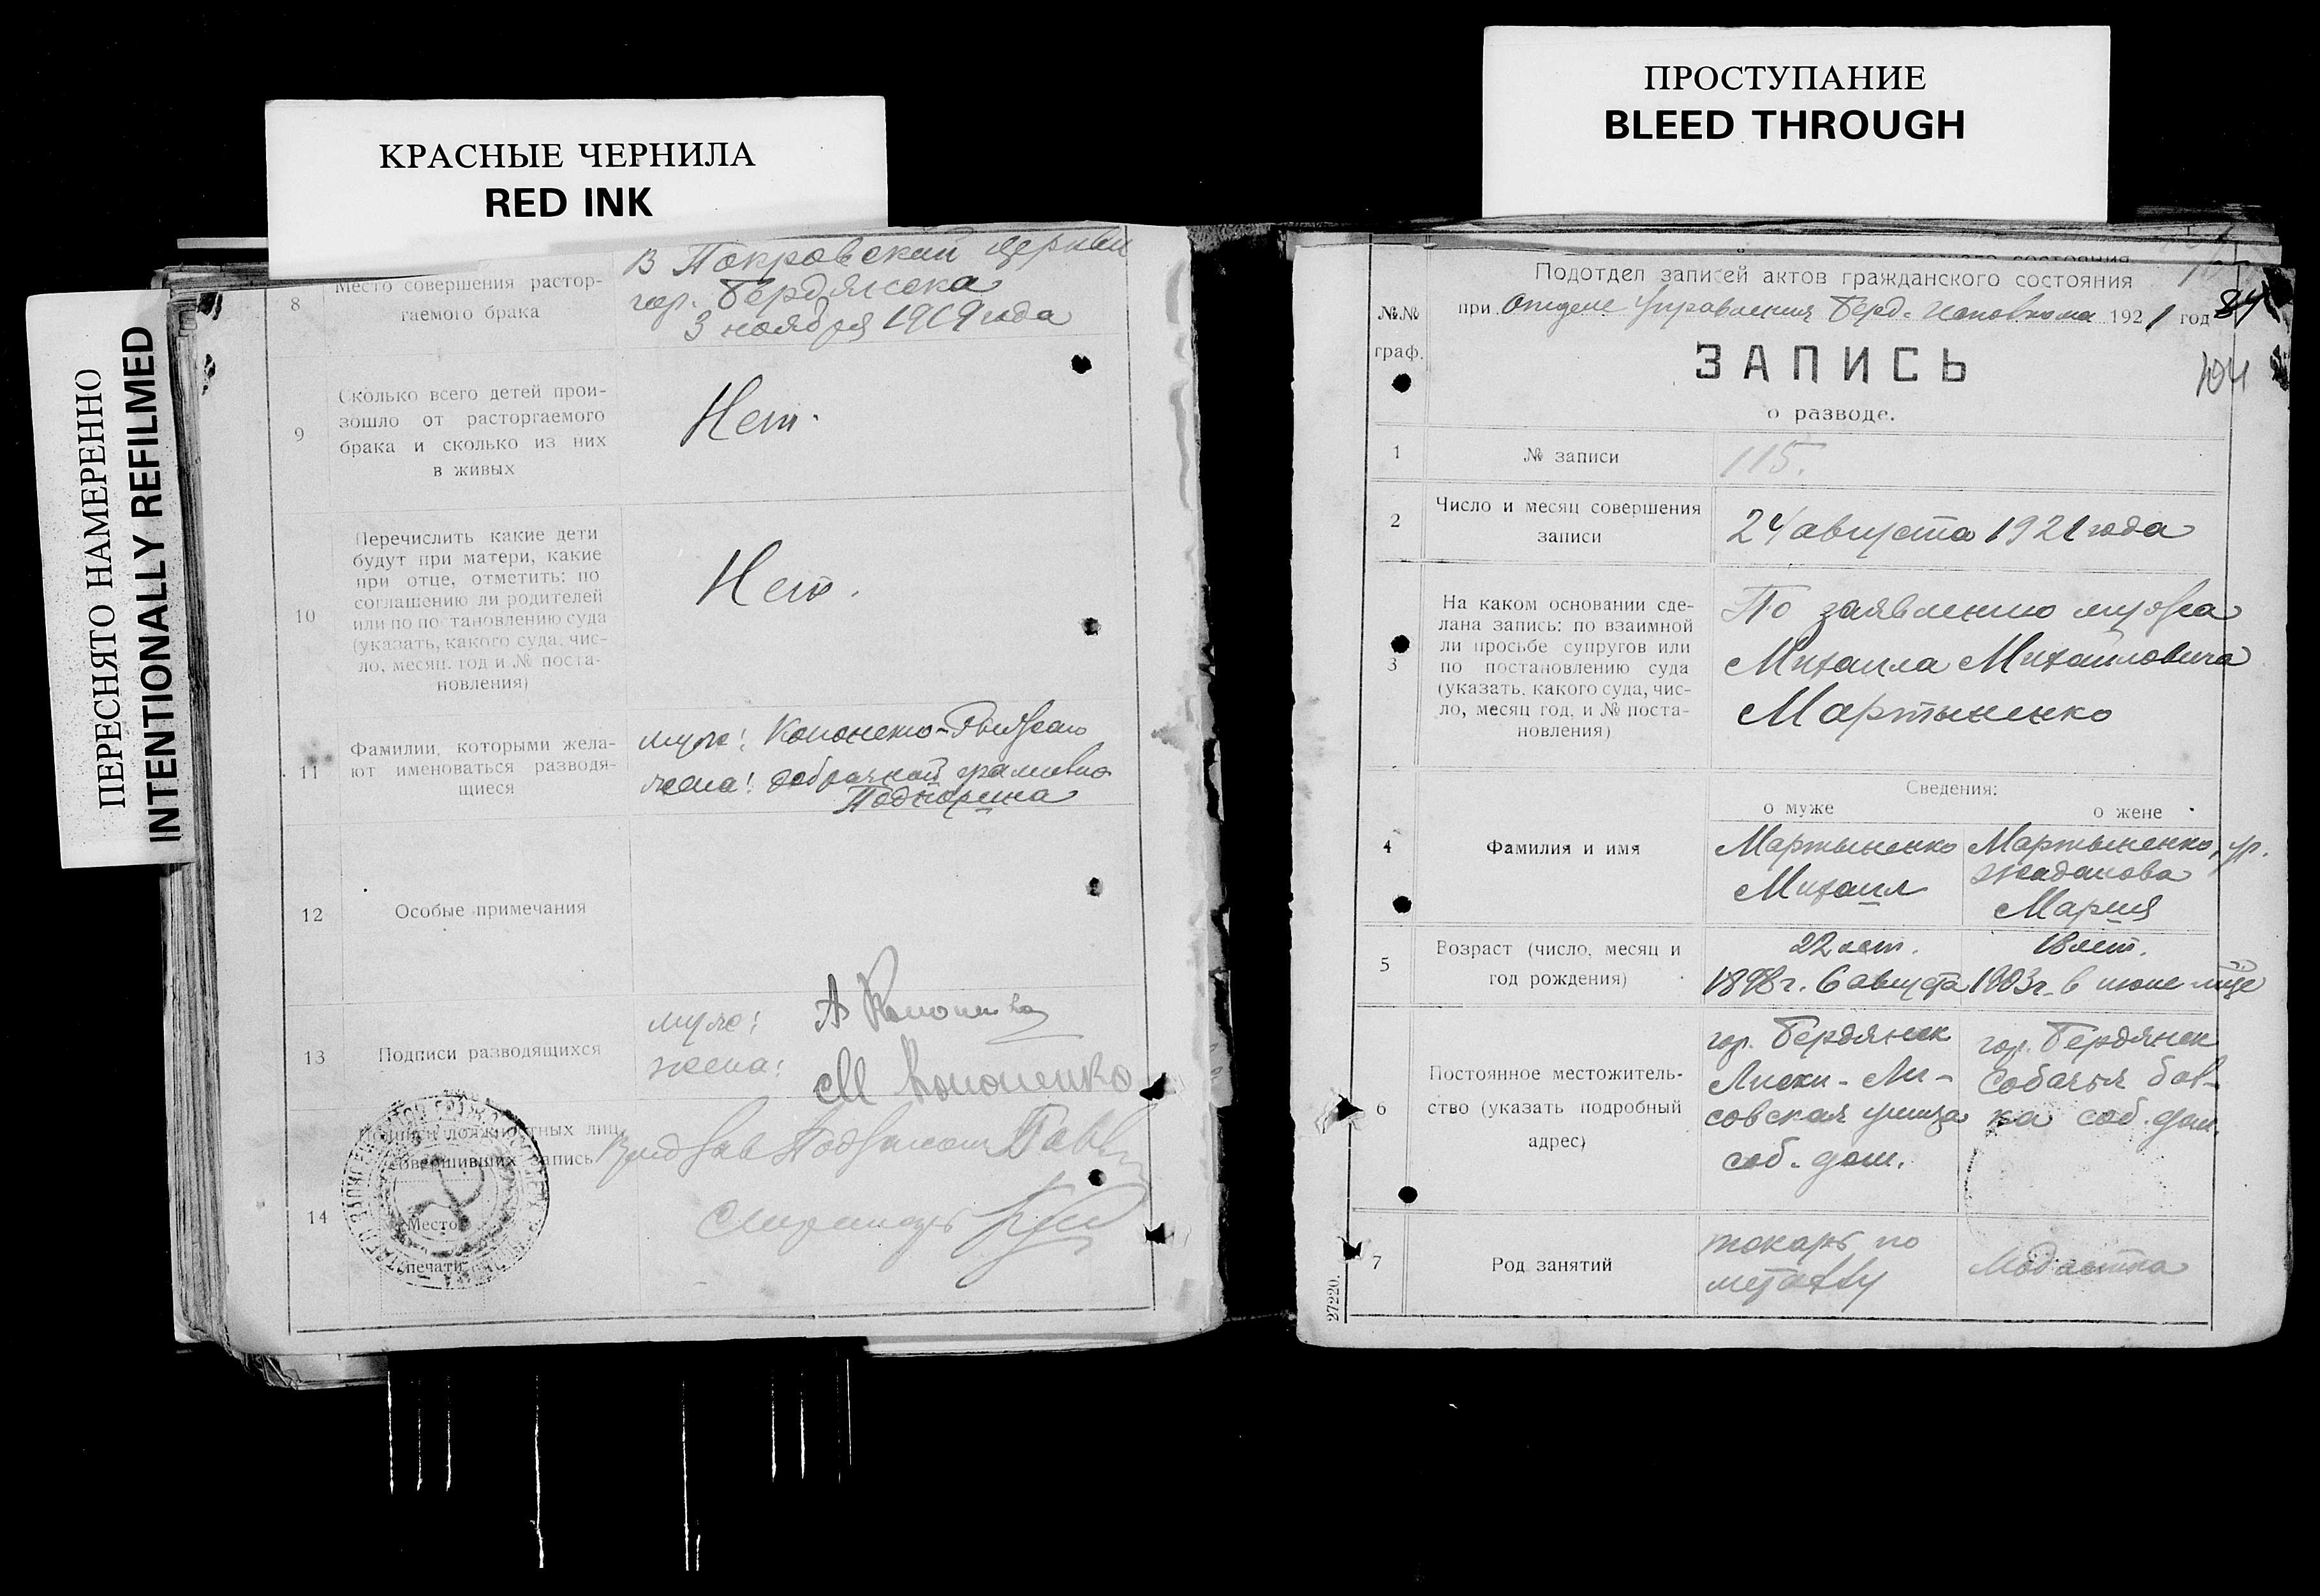 КРАСНЫЕ ЧЕРНИЛА
RED INK
ПРОСТУПАНИЕ
BLEED THROUGH
ПЕРЕСНЯТО НАМЕРЕННО
INTENTIONALLY REFILMED
8
Место совершения растор-
гаемого брака
В Покровский церкви
гор. Бердянска
3 ноября 1919 года
9
Сколько всего детей прои-
зошло от расторгаемого
брака и сколько из них
в живых
Нет.
10
Перечислить какие дети
будут при матери, какие
при отце, отметить: по
соглашению ли родителей
или по постановлению суда
(указать, какого суда, чис-
ло, месяц, год и № поста-
новления)
Нет.
11
Фамилии, которыми жела-
ют именоваться разводя-
щиеся
муж:
жена: добрачной фамилию
12
Особые примечания
13
Подписи разводящихся
муж: А Кононенко
жена: М Кононенко
14
Подписи должностных лиц,
совершивших запись
Место
печати
Подотдел записей актов гражданского состояния
№№
граф.
при Отделе Управления Берд. Исполкома 1921 год
84
104
ЗАПИСЬ
о разводе.
1
№ записи
115.
2
Число и месяц совершения
записи
24 августа 1921 года
3
На каком основании сде-
лана запись: по взаимной
ли просьбе супругов или
по постановлению суда
(указать, какого суда, чис-
ло, месяц год, и № поста-
новления)
По заявлению мужа
Михаила Михайловича
Мартыненко
Сведения:
о муже
о жене
4
Фамилия и имя
Мартыненко
Михаил
Мартыненко, ур.
Жаданова
Мария
5
Возраст (число, месяц и
год рождения)
22 лет.
1898 г. 6 августа
18 лет.
1903 г. в июне м-це
6
Постоянное местожитель-
ство (указать подробный
адрес)
гор. Бердянск
Лиски - Ли-
совская улица
соб. дом.
гор. Бердянск
Собачья бал-
ка соб. дом.
7
Род занятий
токарь по
металлу
Модистка
27220.